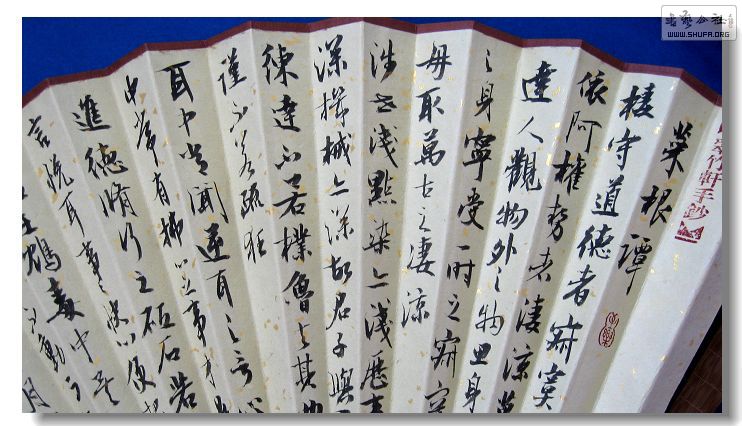 書藝公社
WWW.SHUFA.ORG
竹軒手鈔
菜根譚
棲守道德者寂寞
依阿權勢者淒涼
達人觀物外之物思身
之身寧受一時之寂寞
毋取萬古之淒涼
涉世淺點染亦淺歷事
深機械亦深故君子與
練達不若樸魯與其曲
謹不若疏狂
耳中常聞逆耳之言心
中常有拂心之事才
進德脩行之砥石若
言悅耳事事快心便把
鴆毒中矣
動
月